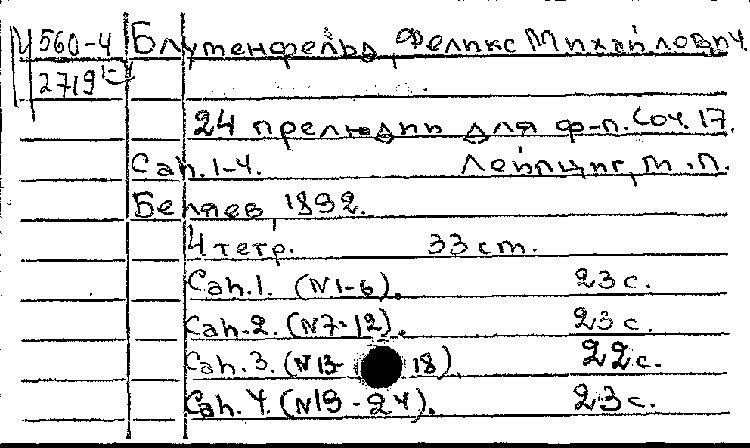 М 560-4 Блуменфельд, Феликс Михайлович.
2719
24 прелюдии для ф-п. Соч. 17.
Cah. 1-4. Лейпциг, М. П.
Беляев, 1892.
4 тетр. 33 см.
Cah. 1. (N 1-6). 23 с.
Cah. 2. (N 7-12). 23 с.
Cah. 3. (N 13-18). 22 с.
Cah. 4. (N 19-24). 23 с.